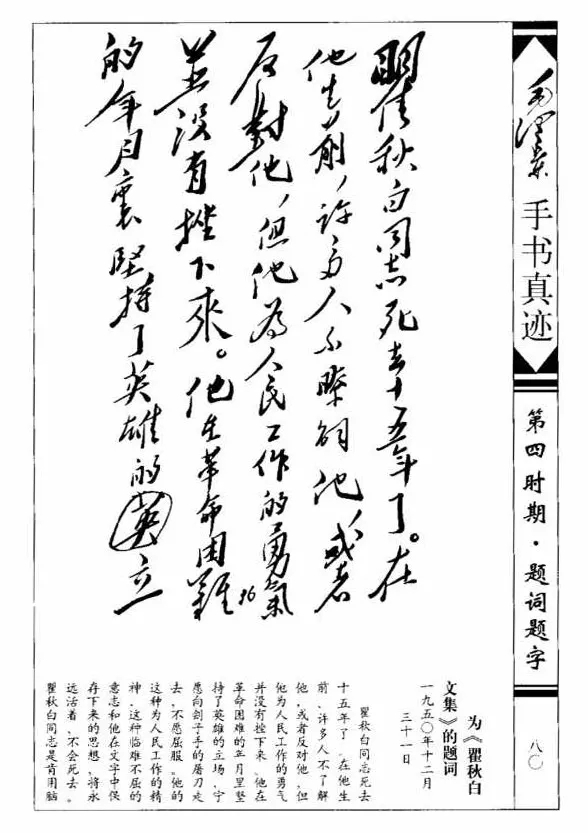 毛泽东
手书真迹
第四时期·题词题字
八〇
瞿秋白同志死去十五年了。在
他生前,许多人不瞭解他,或者
反對他,但他為人民工作的勇氣
並没有挫下來。他在革命困難
的年月裏堅持了英雄的英立
为《瞿秋白
文集》的题词
一九五〇年十二月
三十一日
瞿秋白同志死去
十五年了,在他生
前、许多人不了解
他,或者反对他,但
他为人民工作的勇气
并没有挫下来。他在
革命困难的年月里坚
持了英雄的立场,宁
愿向刽子手的屠刀走
去,不愿屈服。他的
这种为人民工作的精
神、这种临难不屈的
意志和他在文字中保
存下来的思想,将永
远活着、不会死去。
瞿秋白同志是肯用脑